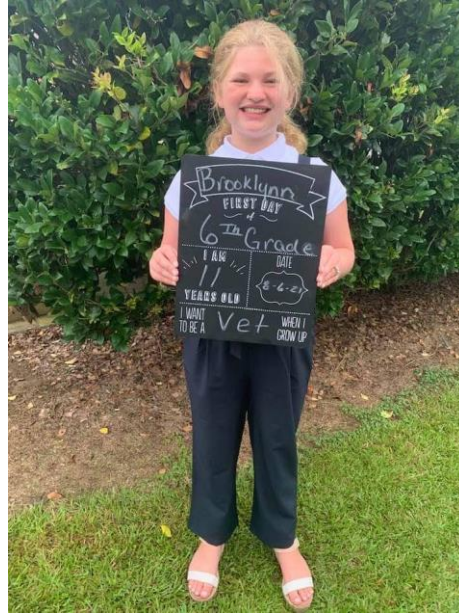 Brooklynn
FIRST DAY
of
6Th Grade
I AM
11
YEARS OLD
DATE
8-6-21
I WANT
TO BE A
Vet
WHEN I
GROW UP